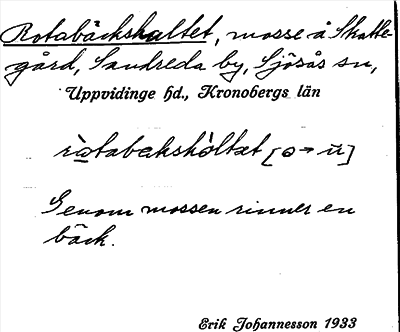 Rotabäckshaltet, mosse å Skatte-
gård, Sandreda by, Sjösås sn,
Uppvidinge hd., Kronobergs län
[ə → ü]
Genom mossen rinner en
bäck.
Erik Johannesson 1933